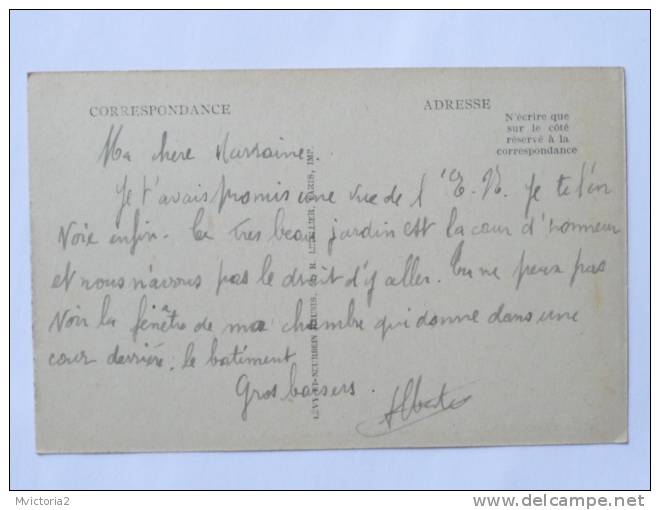 CORRESPONDANCE
ADRESSE
N'écrire que
sur le côté
réservé à la
correspondance
Ma chere Marraine.
Je t'avais promis une vue de l'E.N. Je te l'en
voie enfin. Ce tres beau jardin est la cour d'honneur
et nous n'avons pas le droit d'y aller. Tu ne peux pas
voir la fenêtre de ma chambre qui donne dans une
cour derrière, le batiment
Gros baisers.
LÉVY ET NEURDEIN RÉUNIS, 44 R. LETELLIER, PARIS, IMP.
Mvictoria2
www.delcampe.net